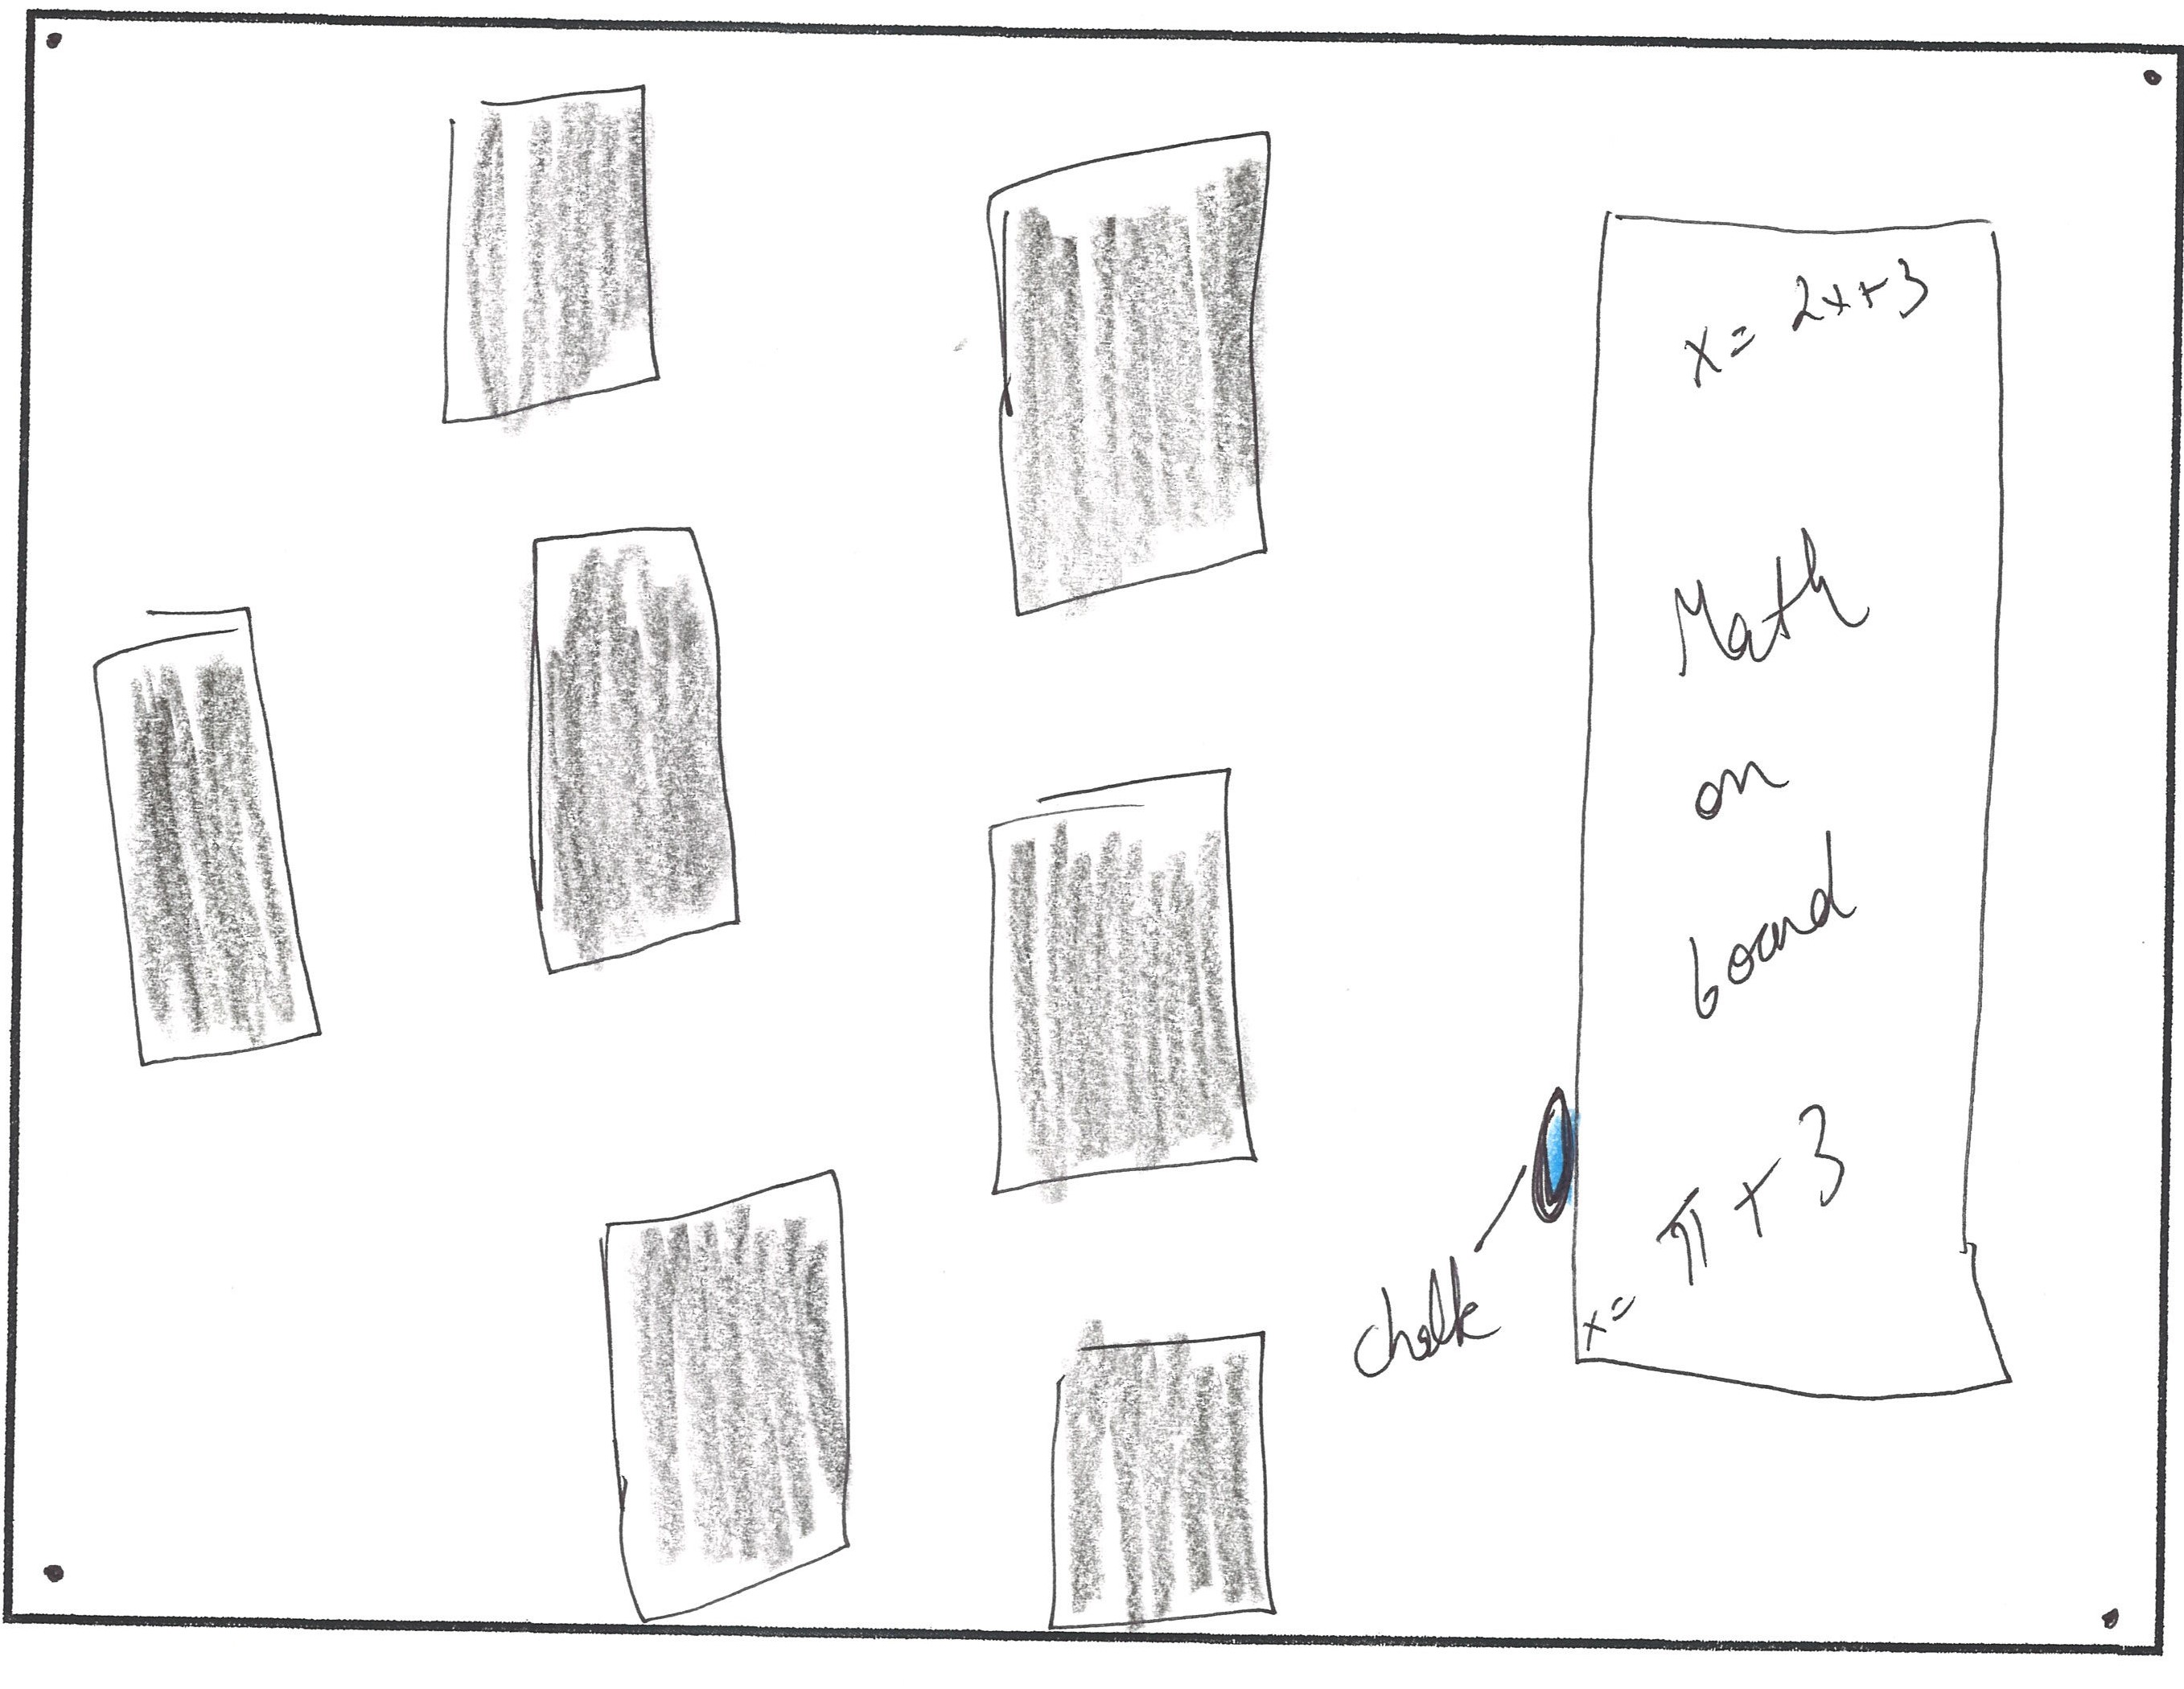 x = 2x+3
Math
on
board
x = π + 3
chalk